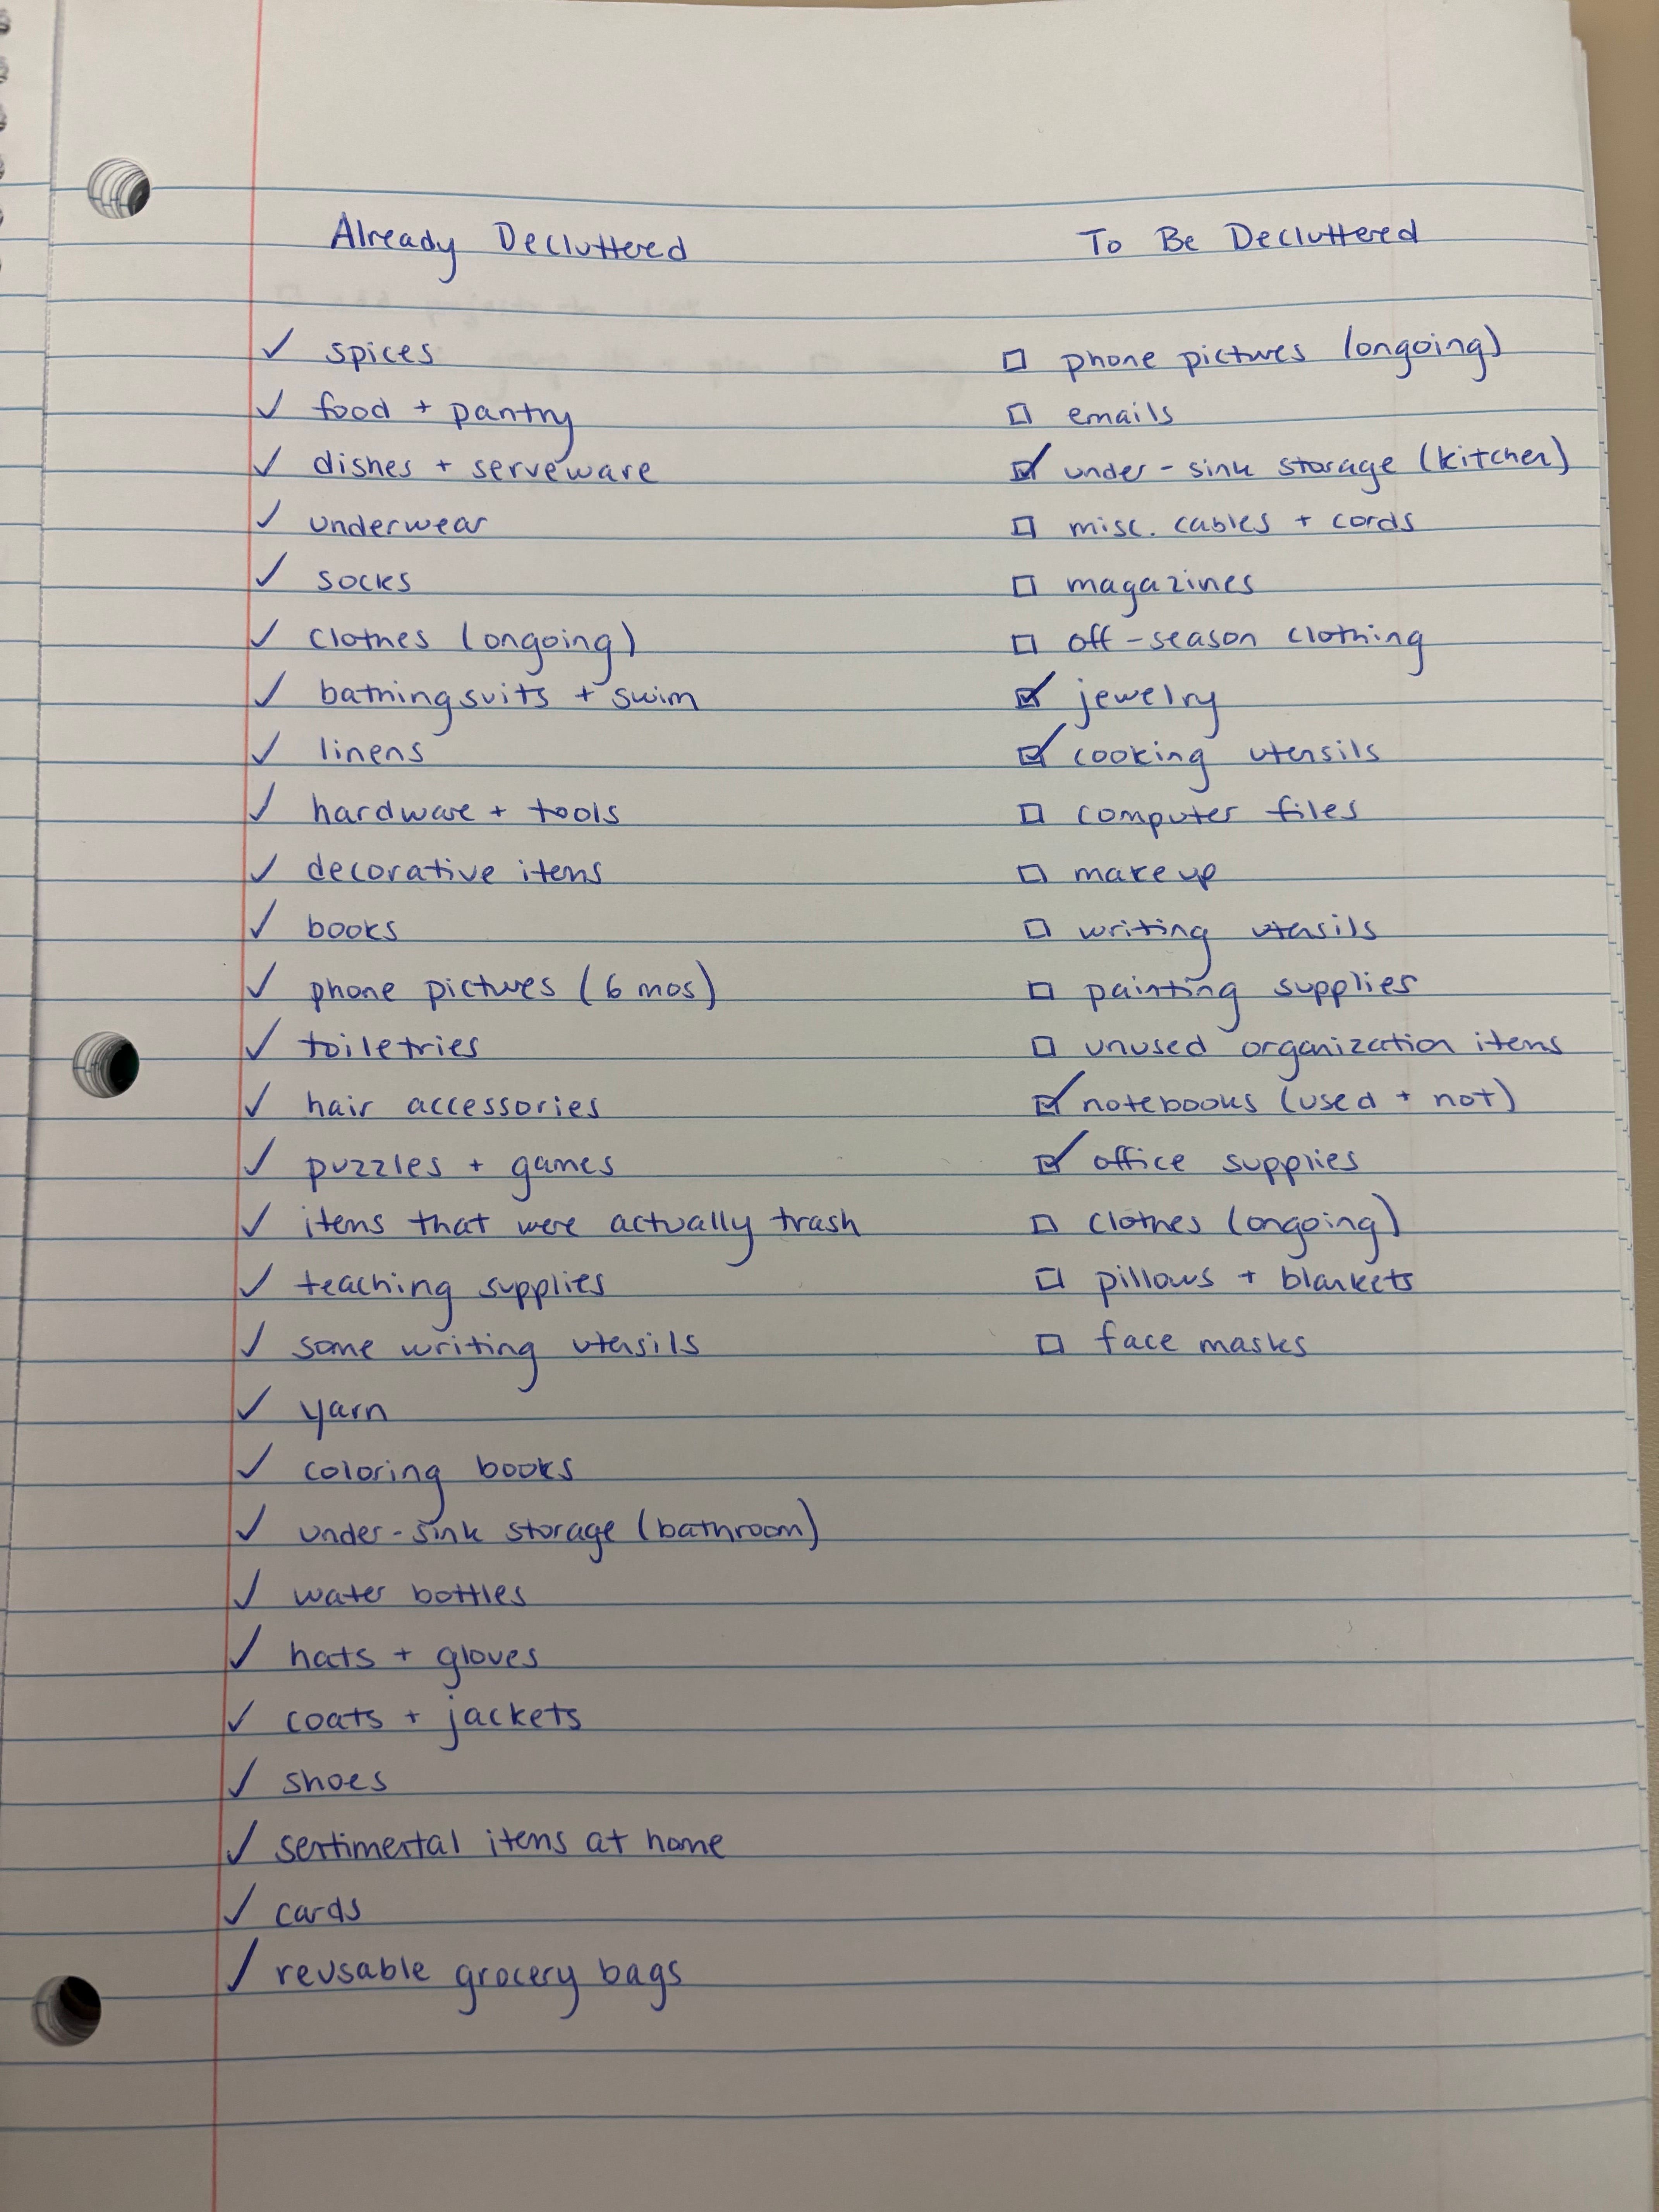 Already Decluttered
✓ spices
✓ food + pantry
✓ dishes + serveware
✓ underwear
✓ socks
✓ clothes (ongoing)
✓ bathingsuits + swim
✓ linens
✓ hardware + tools
✓ decorative items
✓ books
✓ phone pictures (6 mos)
✓ toiletries
✓ hair accessories
✓ puzzles + games
✓ items that were actually trash
✓ teaching supplies
✓ some writing utensils
✓ yarn
✓ coloring books
✓ under-sink storage (bathroom)
✓ water bottles
✓ hats + gloves
✓ coats + jackets
✓ shoes
✓ sentimental items at home
✓ cards
✓ reusable grocery bags
To Be Decluttered
☐ phone pictures (ongoing)
☐ emails
☑ under-sink storage (kitchen)
☐ misc. cables + cords
☐ magazines
☐ off-season clothing
☑ jewelry
☑ cooking utensils
☐ computer files
☐ makeup
☐ writing utensils
☐ painting supplies
☐ unused organization items
☑ notebooks (used + not)
☑ office supplies
☐ clothes (ongoing)
☐ pillows + blankets
☐ face masks